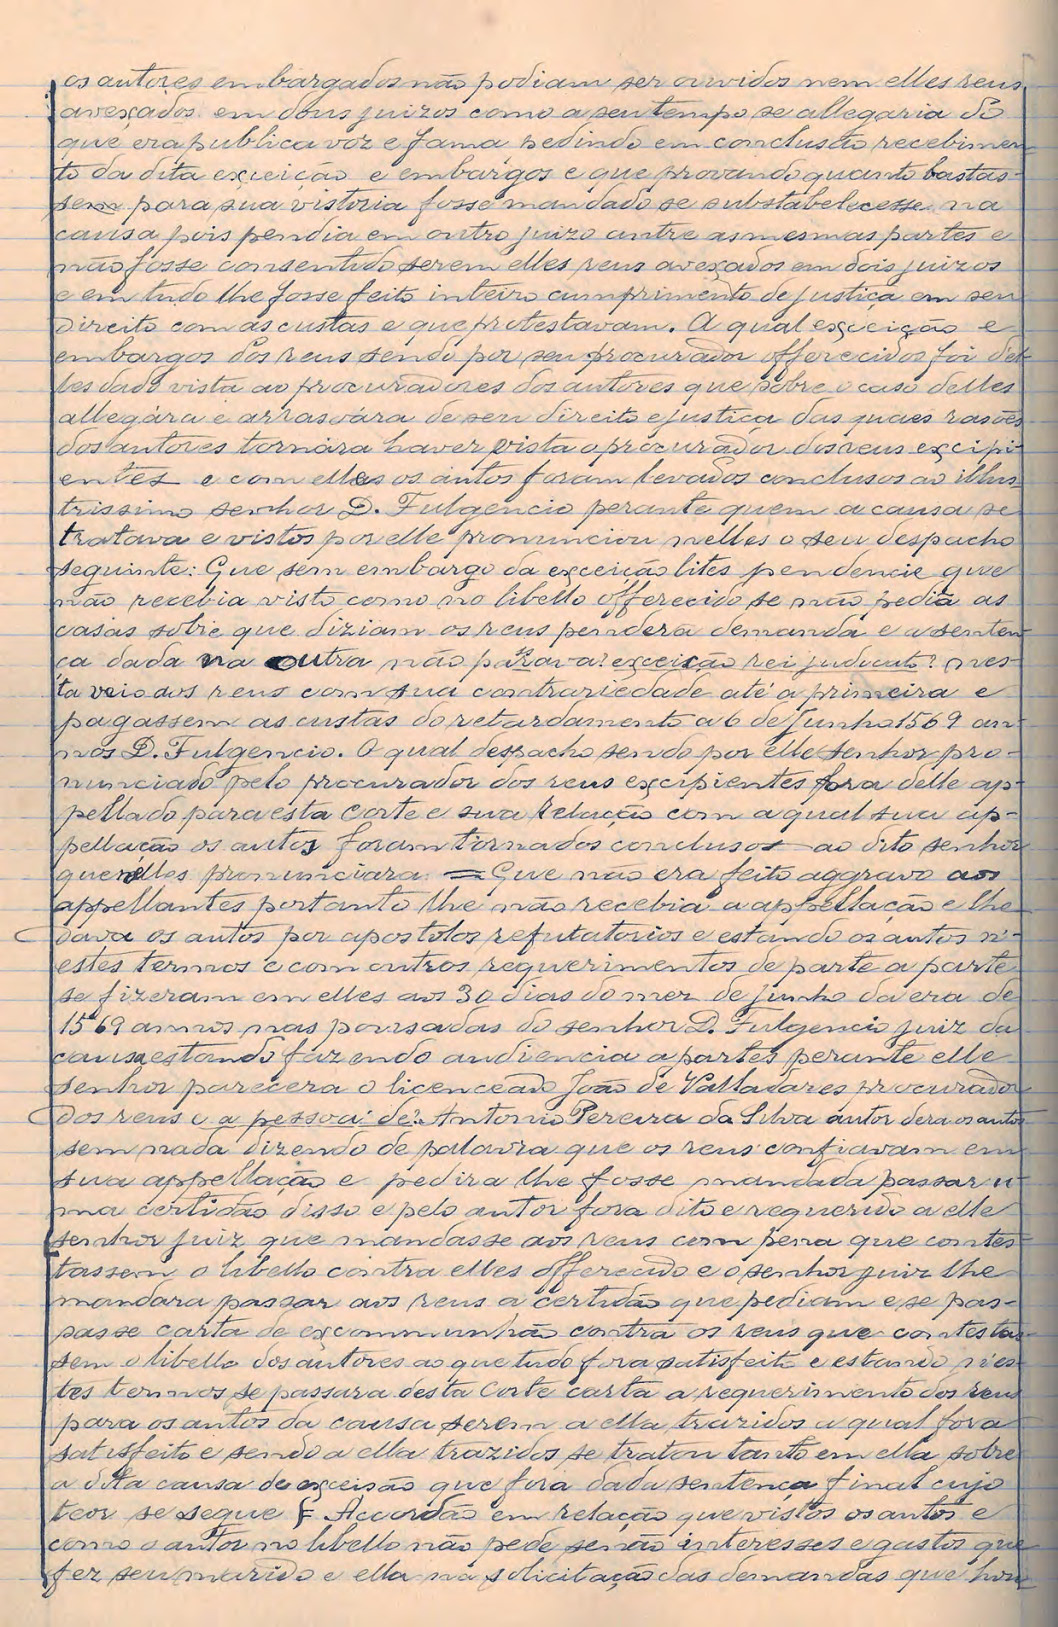 os autores embargados não podiam ser ouvidos nem elles reus
avexados em dous juizos como a seu tempo se allegaria do
que era publica voz e fama pedindo em conclusão recebimen-
to da dita exceição e embargos e que provando quanto bastas-
sem para sua vistoria fosse mandado se substabelecesse na
causa pois pendia em outro juizo antre as mesmas partes e
não fosse consentido serem elles reus avexados em dois juizos
e em tudo lhe fosse feito inteiro cumprimento de justiça em seu
direito com as custas e que protestavam. A qual exceição e
embargos dos reus sendo por seu procurador offerecidos foi del-
les dado vista ao procuradores dos autores que sobre o caso delles
allegára e arrasoára de seu direito e justiça das quaes rasões
dos autores tornára haver vista o procurador dos reus excipi-
entes e com elles os autos foram levados conclusos ao illus-
trissimo senhor D. Fulgencio perante quem a causa se
tratava e vistos por elle pronunciou nelles o seu despacho
seguinte: Que sem embargo da exceição lites pendencie que
não recebia visto como no libello offerecido se não pedia as
casas sobre que diziam os reus pendera demanda e a senten-
ça dada na outra não parava? exceição rei judicate? nes-
ta veio aos reus com sua contrariedade até a primeira e
pagassem as custas do retardamento a 6 de Junho 1569 an-
nos D. Fulgencio. O qual despacho sendo por elle senhor pro-
nunciado pelo procurador dos reus excipientes fora delle ap-
pellado para esta corte e sua Relação com a qual sua ap-
pellação os autos foram tornados conclusos ao dito senhor
que nelles pronunciara = Que não era feito aggravo aos
appellantes portanto lhe não recebia a appellação e lhe
dava os autos por apostolos refutatorios e estando os autos n'-
estes termos e com outros requerimentos de parte a parte
se fizeram em elles aos 30 dias do mez de junho da era de
1569 annos nas pousadas do senhor D. Fulgencio juiz da
causa estando fazendo audiencia a partes perante elle
senhor parecera o licenceado João de Valladares procurador
dos reus e a pessoa? de? Antonio Pereira da Silva autor dera os autos
sem nada dizendo de palavra que os reus confiavam em
sua appellação e pedira lhe fosse mandada passar u-
ma certidão disso e pelo autor fora dito e requerido a elle
senhor juiz que mandasse aos reus com pena que contes-
tassem o libello contra elles offerecido e o senhor juiz lhe
mandara passar aos reus a certidão que pediam e se pas-
sasse carta de excommunhão contra os reus que contestas-
sem o libello dos autores ao que tudo fora satisfeito e estando n'es-
tes termos se passara desta Corte carta a requerimento dos reus
para os autos da causa serem a ella trazidos a qual fora
satisfeito e sendo a ella trazidos se tratou tanto em ella sobre
a dita causa de exceisão que fora dada sentença final cujo
teor se segue Accordão em relação que vistos os autos e
como o autor no libello não pede senão interesses e gastos que
fez seu marido e ella na solicitação das demandas que hou-